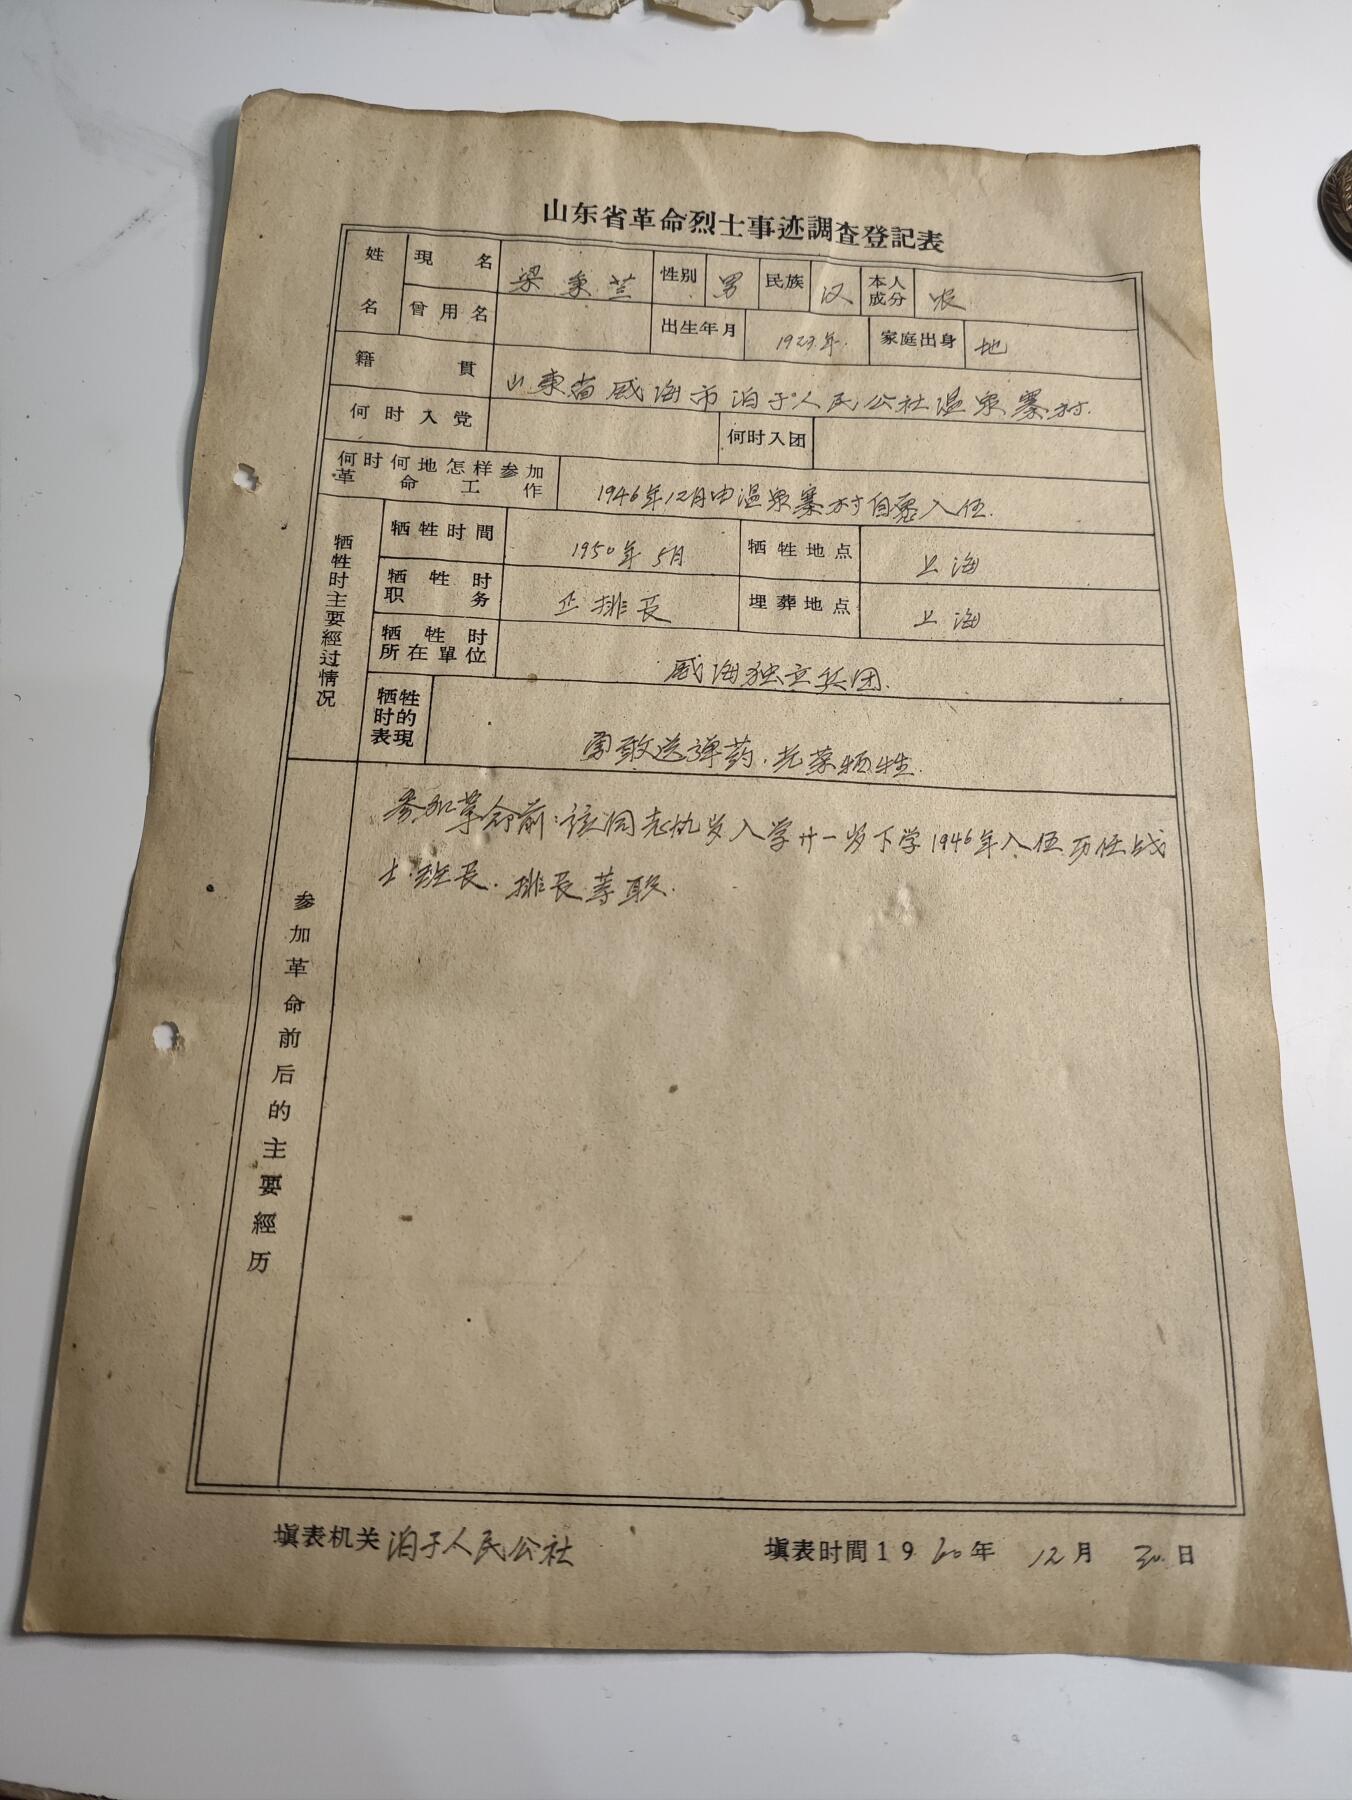 山东省革命烈士事迹調查登記表
姓名 現名 梁秉兰 性别 男 民族 汉 本人成分 农
曾用名 出生年月 1923年. 家庭出身 地
籍貫 山東省威海市泊子人民公社温泉寨村.
何时入党 何时入团
何时何地怎样参加革命工作 1946年12月由温泉寨村自愿入伍.
牺牲时主要經过情况 牺牲时間 1950年5月 牺牲地点 上海
牺牲时职务 正排长 埋葬地点 上海
牺牲时所在單位 威海独立兵团.
牺牲时的表現 勇敢送弹药.光荣牺牲.
参加革命前后的主要經历
参加革命前:该同志九岁入学廿一岁下学1946年入伍历任战
士.班长.排长等职.
填表机关 泊子人民公社 填表时間1960年12月30日